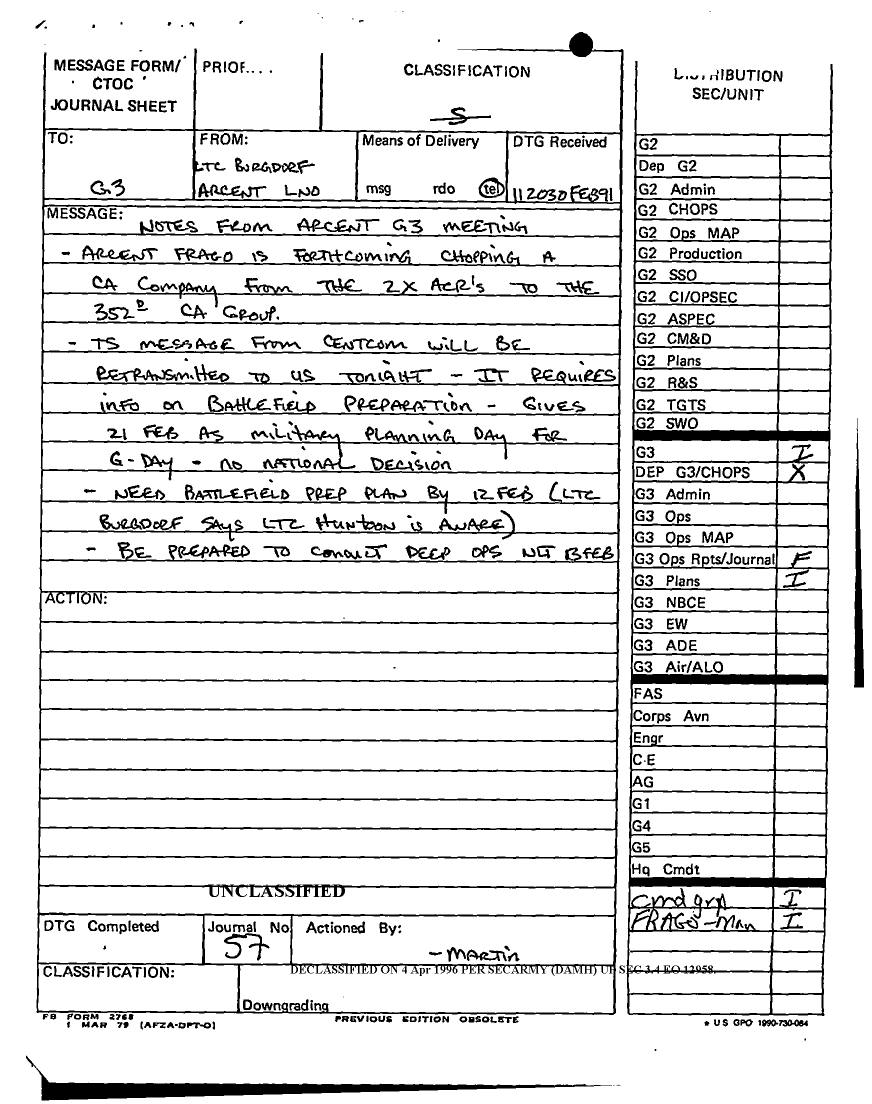 MESSAGE FORM/
CTOC
JOURNAL SHEET
CLASSIFICATION
S
TO:
G3
FROM:
LTC BURGDORF
ARCENT LNO
Means of Delivery
msg rdo tel
DTG Received
112030FEB91
MESSAGE:
NOTES FROM ARCENT G3 MEETING
- ARCENT FRAGO IS FORTHCOMING CHOPPING A
CA Company From THE 2X ACR's TO THE
352D CA GROUP.
- TS MESSAGE From CENTCOM WILL BE
RETRANSMITTED TO US TONIGHT - IT REQUIRES
info on BATTLEFIELD PREPARATION - GIVES
21 FEB AS military PLANNING DAY FOR
G-DAY - no NATIONAL DECISION
- NEED BATTLEFIELD PREP PLAN BY 12 FEB (LTC
BURGDORF SAYS LTC HUNTOON is AWARE)
- BE PREPARED TO CONDUCT DEEP OPS NLT 13 FEB
ACTION:
UNCLASSIFIED
DTG Completed
Journal No
57
Actioned By:
- MARTIN
CLASSIFICATION:
DECLASSIFIED ON 4 Apr 1996 PER SECARMY (DAMH) UP SEC 3.4 EO 12958.
Downgrading
FB FORM 2768
1 MAR 79 (AFZA-DPT-O)
PREVIOUS EDITION OBSOLETE
SEC/UNIT
G2
Dep G2
G2 Admin
G2 CHOPS
G2 Ops MAP
G2 Production
G2 SSO
G2 CI/OPSEC
G2 ASPEC
G2 CM&D
G2 Plans
G2 R&S
G2 TGTS
G2 SWO
G3 I
DEP G3/CHOPS X
G3 Admin
G3 Ops
G3 Ops MAP
G3 Ops Rpts/Journal F
G3 Plans I
G3 NBCE
G3 EW
G3 ADE
G3 Air/ALO
FAS
Corps Avn
Engr
C-E
AG
G1
G4
G5
Hq Cmdt
cmd grp I
FRAGO - I
★ U S GPO 1990-730-084